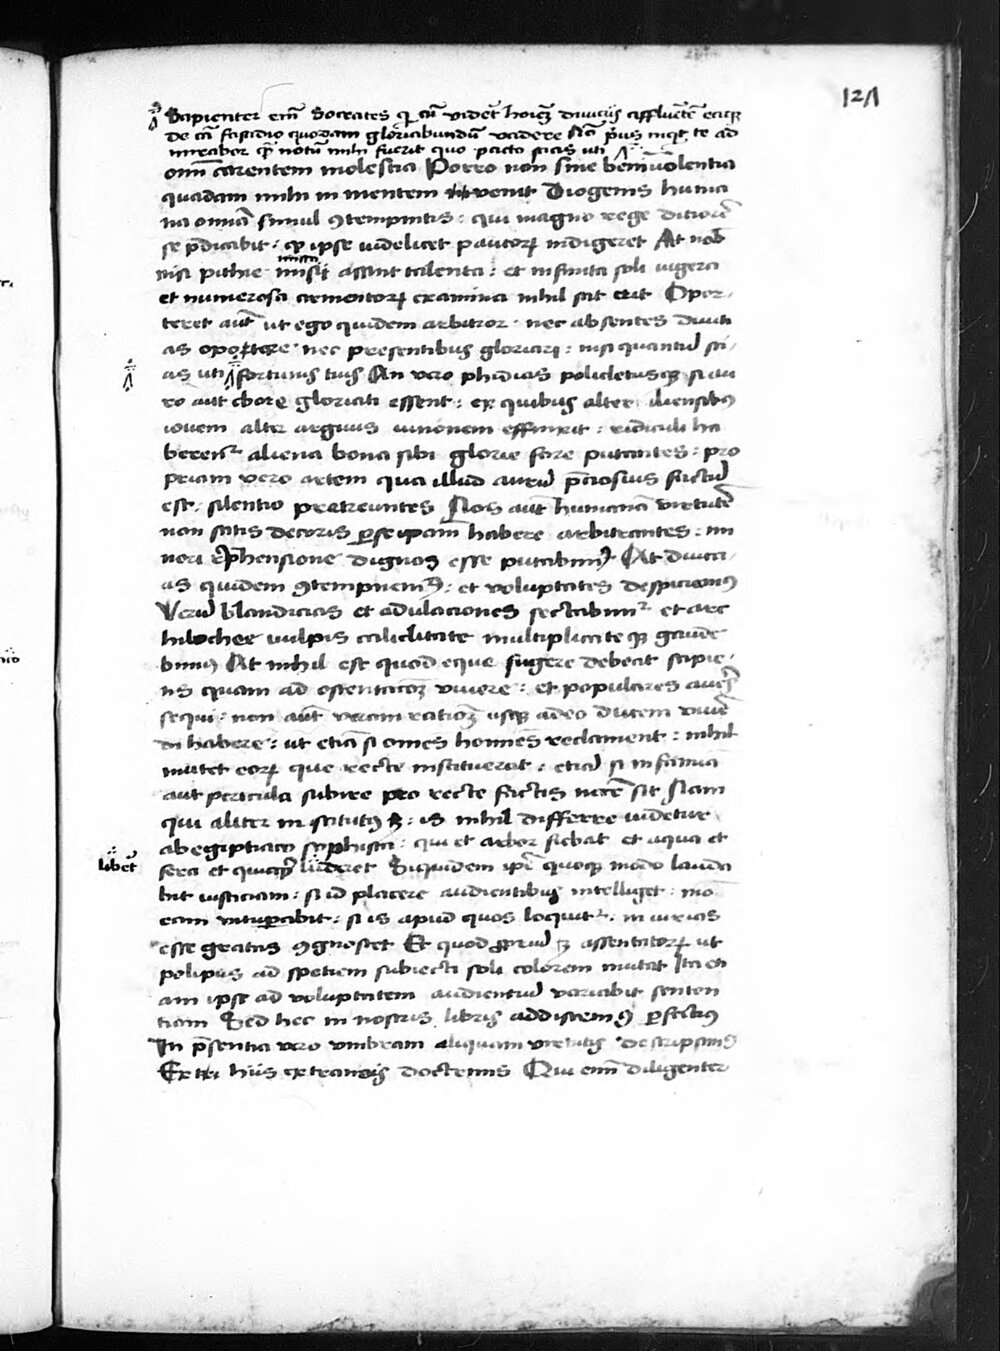 121
Sapienter enī Socrates qi cū videt hoīeȝ divicijs affluētē eaqȝ
de cā fastidio quodam gloriabundū vadere Nā prius inqit te ad
mirabor qȝ notū mihi fuerit quo pacto scias uti
omī carentem molestia Porro non sine benivolentia
quadam mihi in mentem venit Diogenis huma
na omīa simul ꝯtempnētis : qui magno rege ditiorē
se p̄dicabit : qȝ ipse videlicet pautorꝝ indigeret At nob̄
nisi pithie missa assint talenta : et infinita soli iugera
et numerosa armentorꝝ examina nihil sat erit Opor
teret aūt ut ego quidem arbitror nec absentes diuiti
as oportere nec presentibus gloriari : nisi quantū sci
as uti fortunis tuis An vero phidias policletusqȝ si au
ro aut ebore gloriati essent : ex quibus alter iliensibus
iovem alter arguis iunonem effinxit : ridiculi ha
berentr aliena bona sibi glorie fore putantes : pro
priam vero artem qua illud aurū p̄ciosius factū
est silentio pretreuntes Nos aūt humanā virtutē
non satis decoris per se ipam habere arbitrantes : mi
nori rep̄hensione dignos esse putabimꝰ At diuici
as quidem ꝯtempnemꝰ : et voluptates despiciamꝰ
Verū blandicias et adulaciones sectabimr et arc
hilochee vulpis caliditate multiplicateqȝ gaude
bimus At nihil est quod eque fugere debeat sapie
ns quam ad ostentacōȝ vivere : et populares aures
sequi : non aūt veram ratioȝ usqȝ adeo ducem viuē
di habere : ut etiā si omēs homines reclament : nihil
mutet eorꝝ que recte instituerat : etiā si infamia
aut pericula subire pro recte factis necē sit Nam
qui aliter institutꝰ ē : is nihil differre videtur
ab egiptiaco sophista : qui et arbor fiebat et aqua et
libet
fera et quicqȝ luderet Siquidem ipē quoqȝ modo lauda
bit iusticiam : si id placere audientibus intelliget : mō
eam vituperabit : si is apud quos loquitr : iniurias
esse gratas ꝯgnoscet Et quod ꝓpriū ȝ assentatorꝝ ut
polipus ad spetiem subiecti soli colorem mutat Ita eti
am ipse ad voluptatem audientiū variabit senten
tiam Sed hec in nostris libris addiscemꝰ perfectius
In p̄sentia vero umbram aliquam virtutis descripsimꝰ
Ex hiis extraneis doctrinis Qui enī diligenter